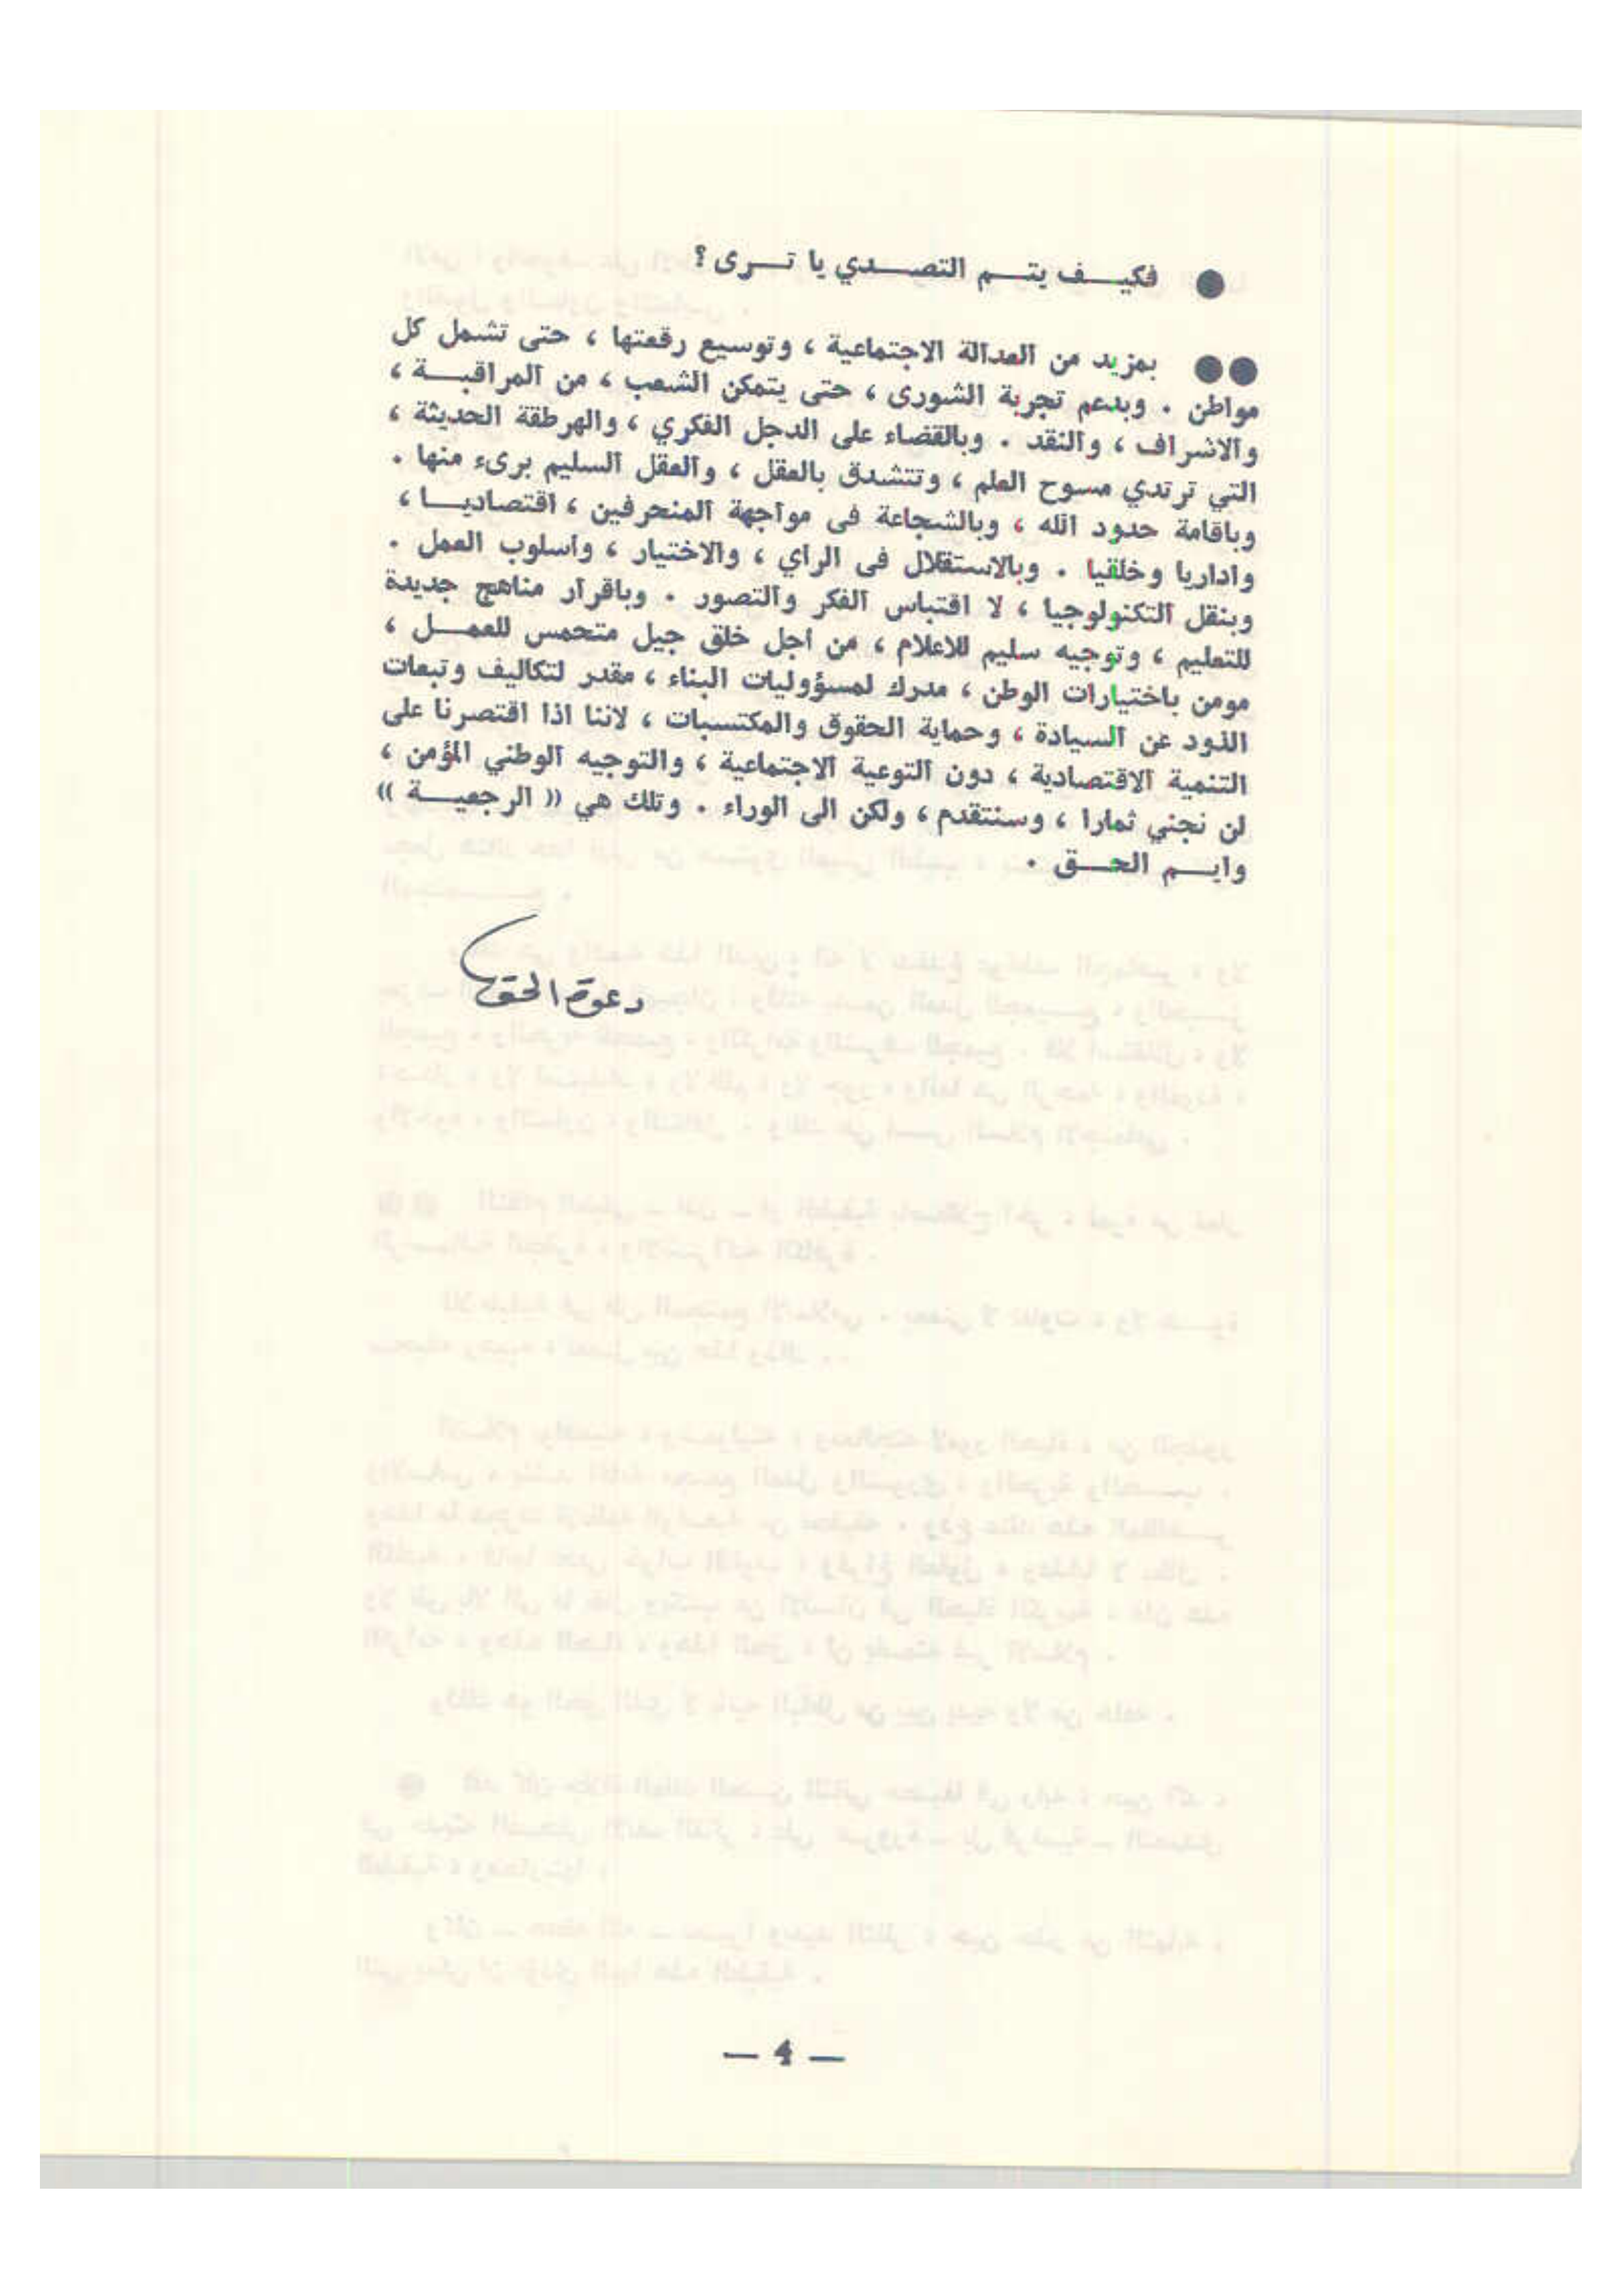 ● فكيـــف يتـــم التصـــدي يا تـــرى ؟
●● بمزيد من العدالة الاجتماعية ، وتوسيع رقعتها ، حتى تشمل كل
مواطن . وبدعم تجربة الشورى ، حتى يتمكن الشعب ، من المراقبـــة ،
والاشراف ، والنقد . وبالقضاء على الدجل الفكري ، والهرطقة الحديثة ،
التي ترتدي مسوح العلم ، وتتشدق بالعقل ، والعقل السليم برىء منها .
وباقامة حدود الله ، وبالشجاعة فى مواجهة المنحرفين ، اقتصاديـــا ،
واداريا وخلقيا . وبالاستقلال فى الراي ، والاختيار ، واسلوب العمل .
وبنقل التكنولوجيا ، لا اقتباس الفكر والتصور . وباقرار مناهج جديدة
للتعليم ، وتوجيه سليم للاعلام ، من اجل خلق جيل متحمس للعمـــل ،
مومن باختيارات الوطن ، مدرك لمسؤوليات البناء ، مقدر لتكاليف وتبعات
الذود عن السيادة ، وحماية الحقوق والمكتسبات ، لاننا اذا اقتصرنا على
التنمية الاقتصادية ، دون التوعية الاجتماعية ، والتوجيه الوطني المؤمن ،
لن نجني ثمارا ، وسنتقدم ، ولكن الى الوراء . وتلك هي « الرجعيـــة »
وايـــم الحـــق .
دعوة الحق
— 4 —